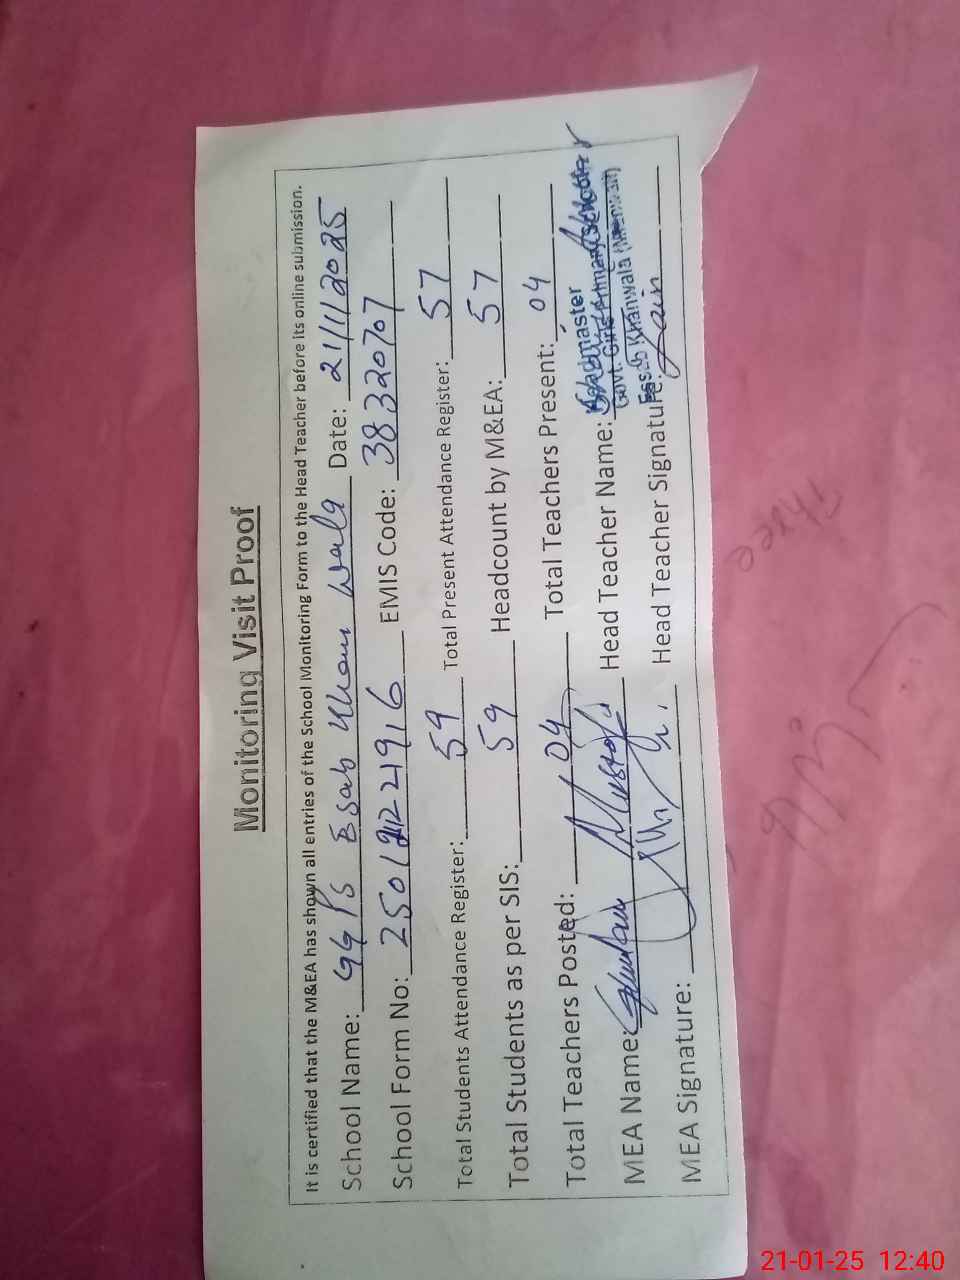 Monitoring Visit Proof
It is certified that the M&EA has shown all entries of the School Monitoring Form to the Head Teacher before its online submission.
School Name: GGPS Esab Khan Wala Date: 21/1/2025
School Form No: EMIS Code: 38320707
Total Students Attendance Register: 59 Total Present Attendance Register: 57
Total Students as per SIS: 59 Headcount by M&EA: 57
Total Teachers Posted: 04 Total Teachers Present: 04
MEA Name: Mustafa Head Teacher Name:
Headmaster
Govt. Girls Primary School
Essab Khanwala
MEA Signature: Head Teacher Signature:
Three
21-01-25 12:40